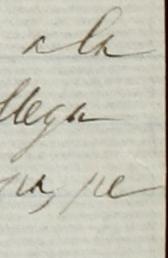 a la
llega
pa, pe